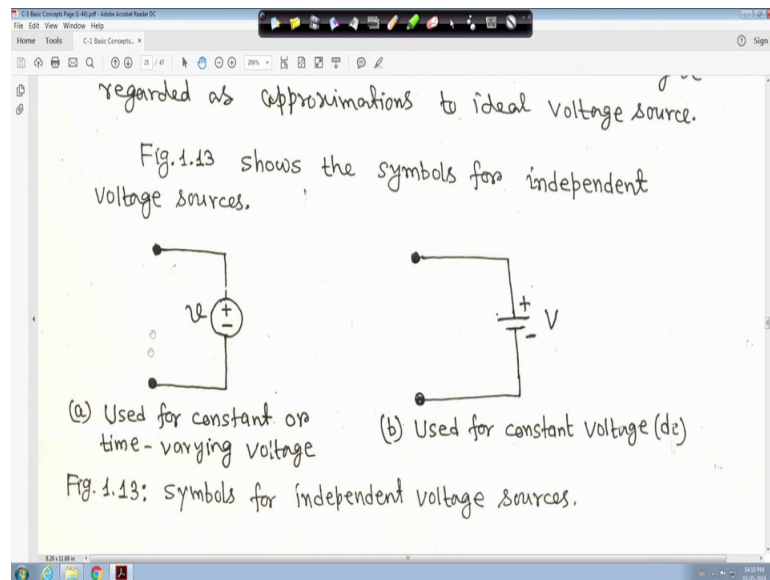 C-1 Basic Concepts Page (1-44).pdf - Adobe Acrobat Reader DC
File Edit View Window Help
Home Tools C-1 Basic Concepts... × Sign
25 / 47 200%
regarded as approximations to ideal voltage source.
Fig. 1.13 shows the symbols for independent
voltage sources.
v + −
+ − V
(a) Used for constant or
time-varying voltage
(b) Used for constant voltage (dc)
Fig. 1.13: Symbols for independent voltage sources.
8.26 x 11.69 in